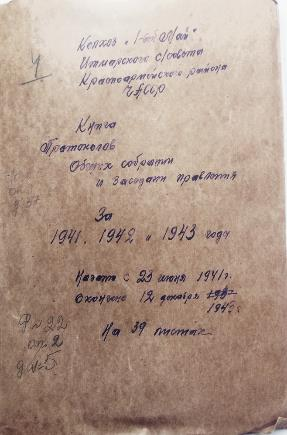 Колхоз "1-ый Май"
Ишпарского с/совета
Красноармейского района
ЧАССР
4
Книга
Протоколов
Общих собрании
и Заседани правления
оп.
д. 37
За
1941, 1942 и 1943 годы
Начата с 23 июня 1941 г.
Окончено 12 декабря
1943 г.
На 39 листах
Ф№ 22
оп. 2
д. 5